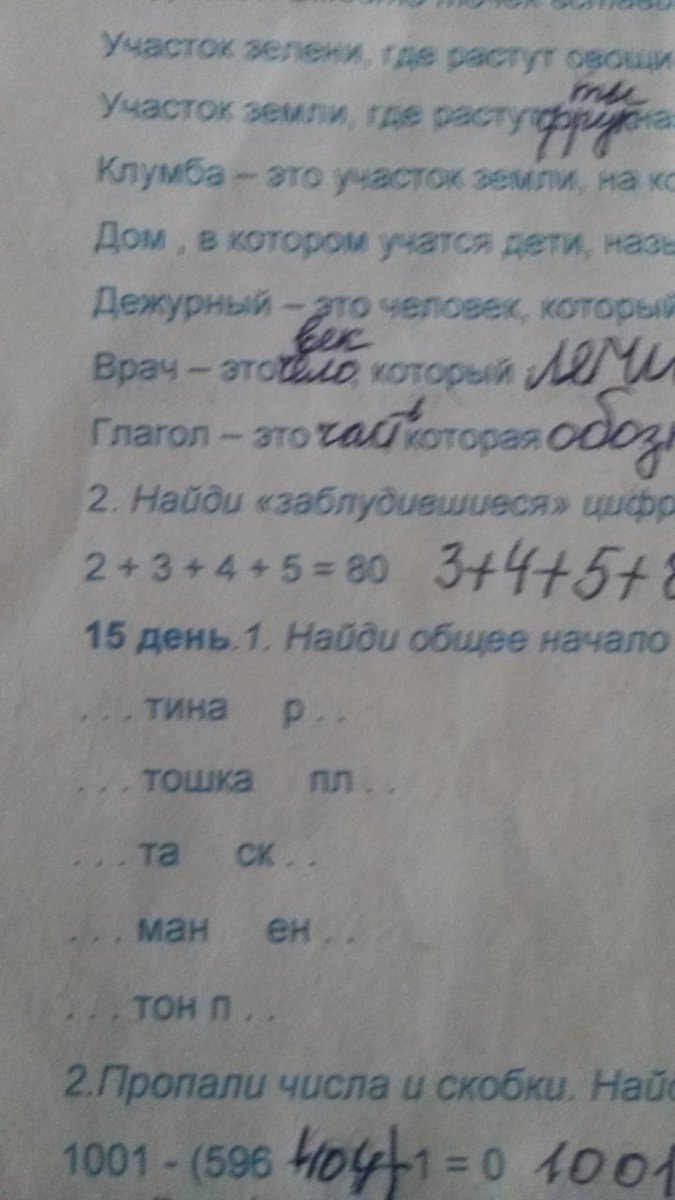 Участок зелени, где растут овощи
Участок земли, где растут фрукты
Клумба – это участок земли, на
Дом , в котором учатся дети,
Дежурный – это человек, который
Врач – это человек, который
Глагол – это которая
2. Найди «заблудившиеся»
2 + 3 + 4 + 5 = 80 3+4+5+
15 день.1. Найди общее начало
. . . тина р . .
. . . тошка пл . .
. . . та ск . .
. . . ман ен . .
. . . тон п . .
2.Пропали числа и скобки.
1001 - (596 +404)-1 = 0 1001